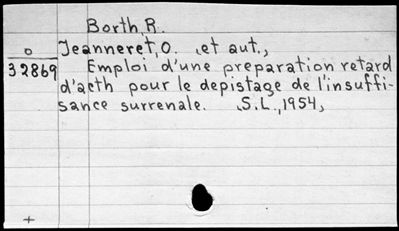 Borth, R.
o Jeanneret, O. et aut.,
32869 Emploi d'une preparation retard
d'acth pour le depistage de l'insuffi-
sance surrenale. S.L., 1954,
+